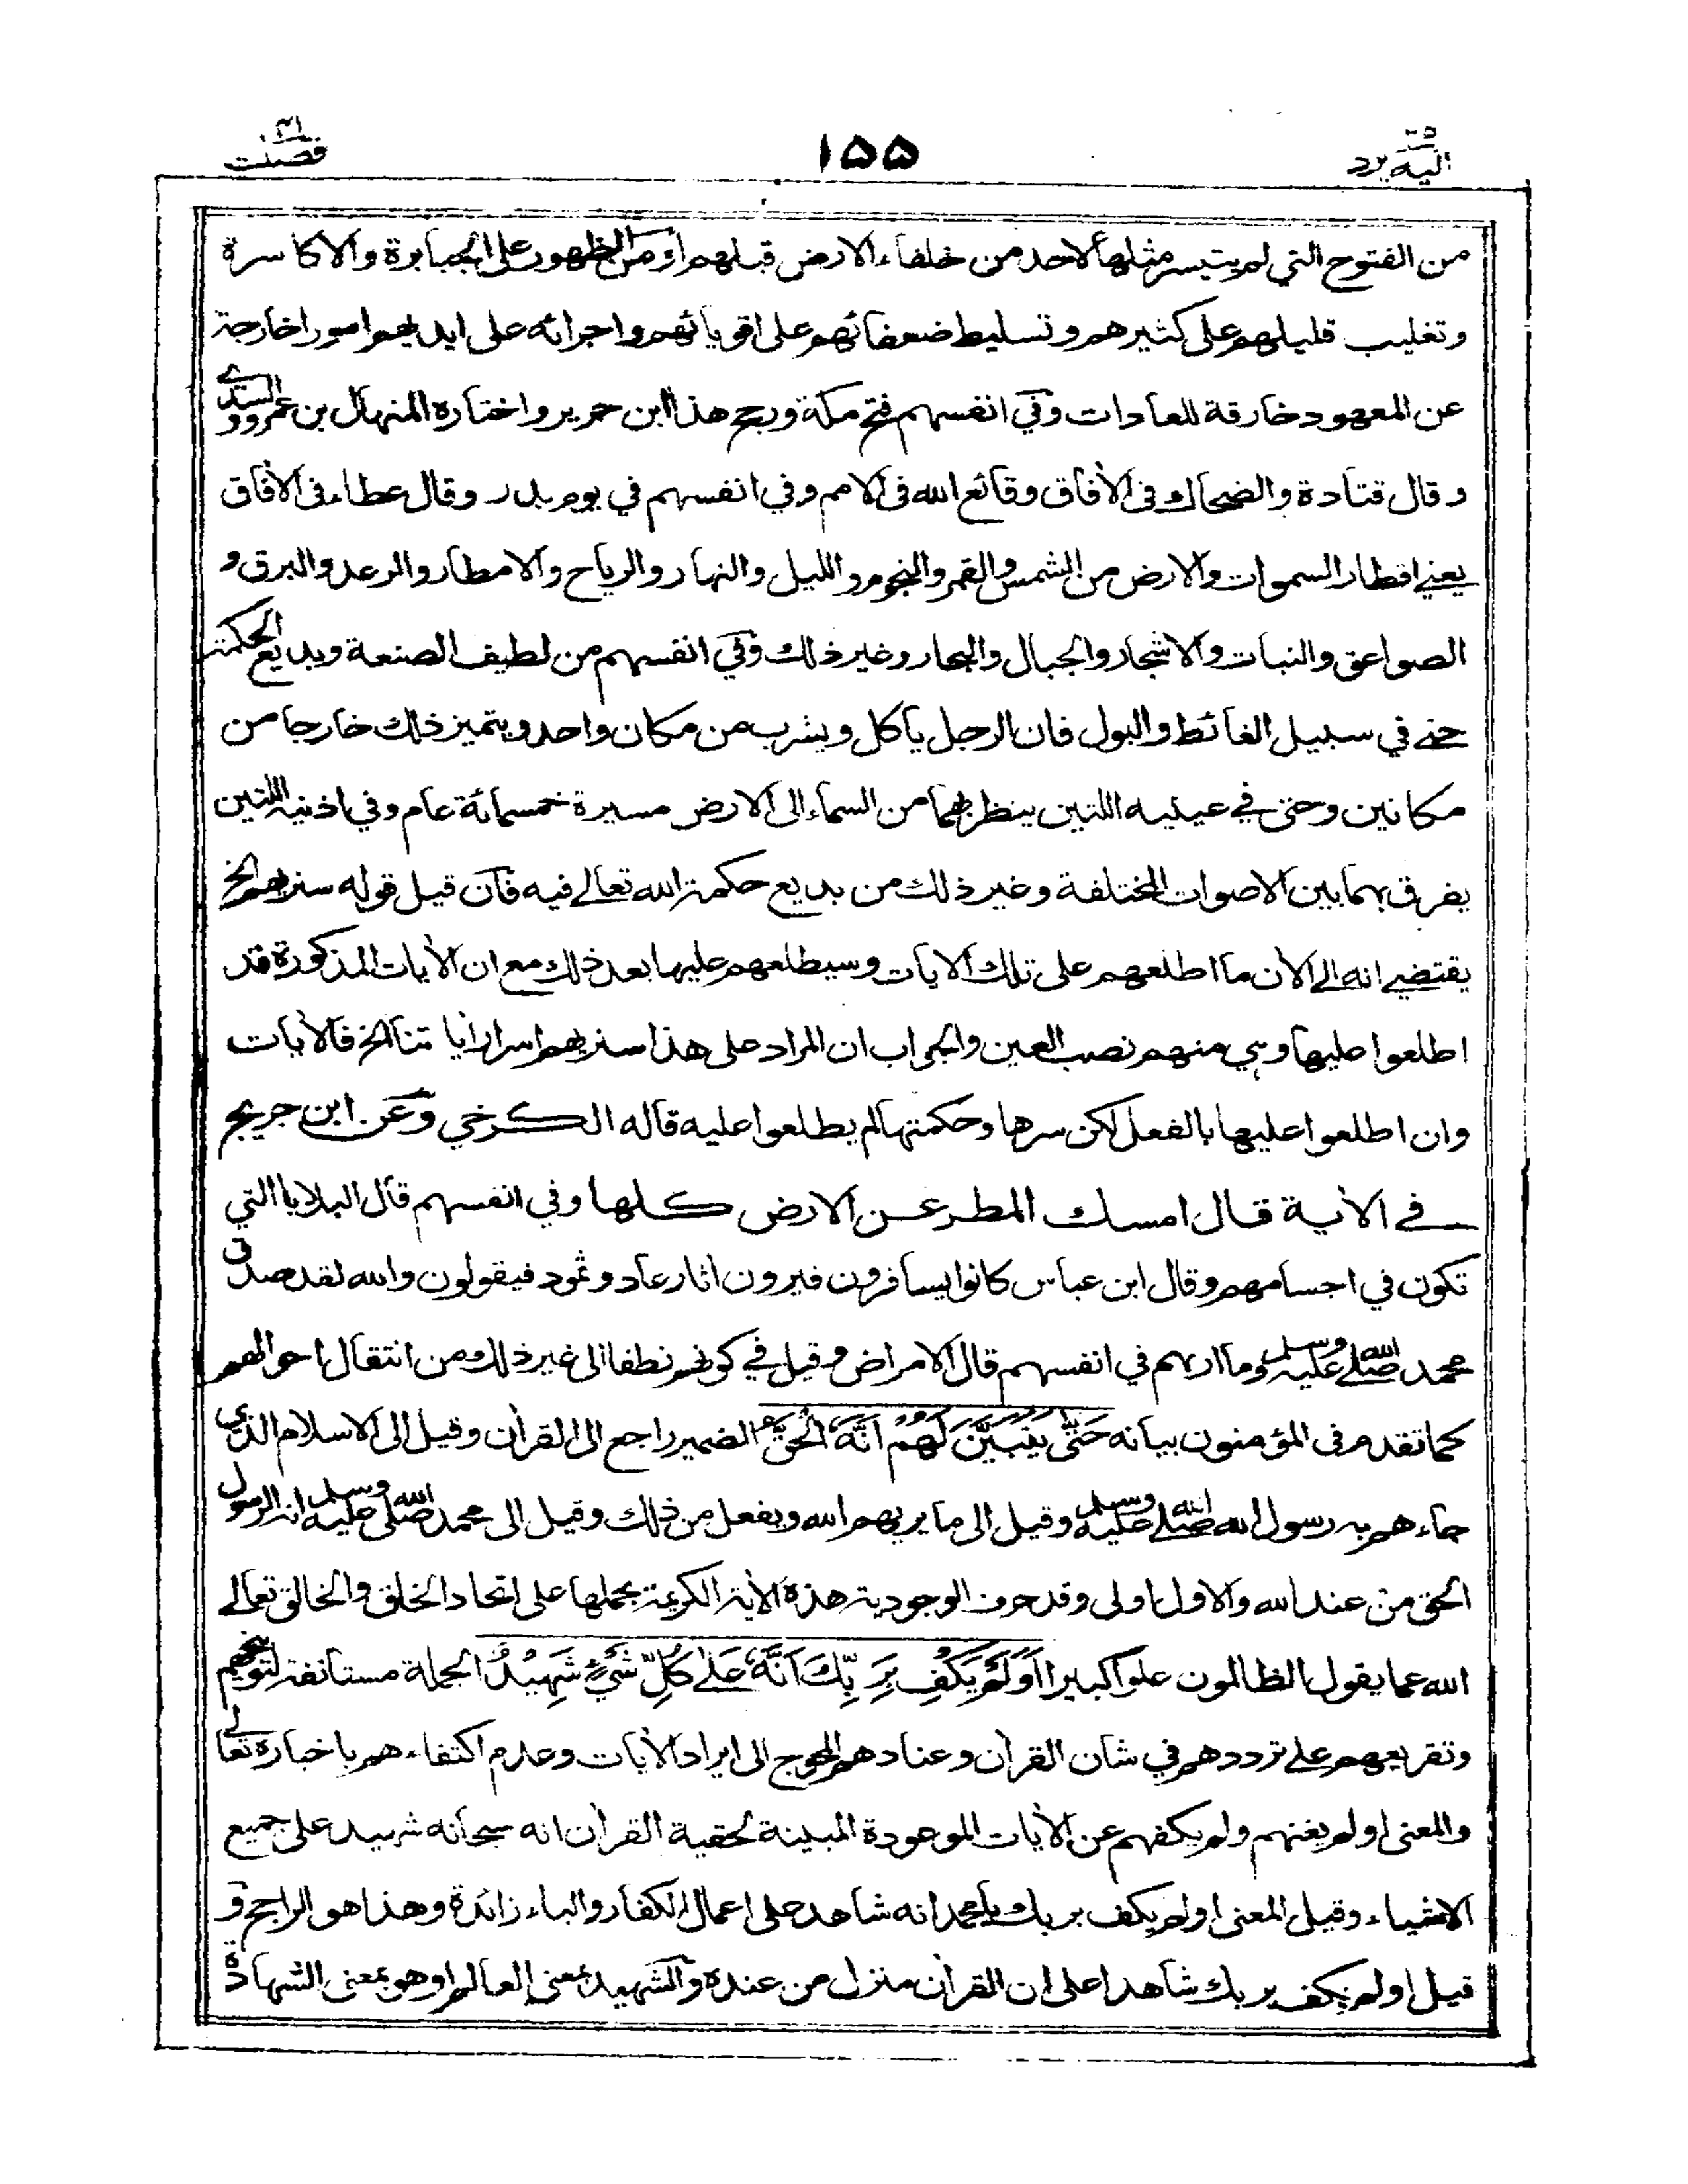 اليه يرد ٢٥
١٥٥
فصلت ٤١
من الفتوح التي لم يتيسر مثلها لاحد من خلفاء الارض قبلهم او من الظهور على الجبابرة والاكاسرة
وتغليب قليلهم على كثيرهم وتسليط ضعفائهم على اقويائهم واجرائه على ايديهم امورا خارجة
عن المعهود خارقة للعادات وفي انفسهم فتح مكة ورجح هذا ابن جرير واختاره المنهال بن عمرو والسدي
وقال قتادة والضحاك في الأفاق وقائع الله في الامم وفي انفسهم في يوم بدر وقال عطاء في الأفاق
يعني اقطار السموات والارض من الشمس والقمر والنجوم والليل والنهار والرياح والامطار والرعد والبرق و
الصواعق والنبات والاشجار والجبال والبحار وغير ذلك وفي انفسهم من لطيف الصنعة وبديع الحكمة
حتى في سبيل الغائط والبول فان الرجل ياكل ويشرب من مكان واحد ويتميز ذلك خارجا من
مكانين وحتى في عينيه اللتين ينظر بهما من السماء الى الارض مسيرة خمسمائة عام وفي اذنيه اللتين
يفرق بهما بين الاصوات المختلفة وغير ذلك من بديع حكمة الله تعالى فيه فان قيل قوله سنريهم الخ
يقتضي انه الى الأن ما اطلعهم على تلك الايات وسيطلعهم عليها بعد ذلك مع ان الأيات المذكورة قد
اطلعوا عليها وهي منهم نصب العين والجواب ان المراد على هذا سنريهم اسرار أياتنا الخ فالأيات
وان اطلعوا عليها بالفعل لكن سرها وحكمتها لم يطلعوا عليه قاله الكرخي وعن ابن جريج
في الأية قال امسك المطر عن الارض كلها وفي انفسهم قال البلايا التي
تكون في اجسامهم وقال ابن عباس كانوا يسافرون فيرون اثار عاد وثمود فيقولون والله لقد صدق
محمد صلى الله عليه وسلم وما اريهم في انفسهم قال الامراض وقيل في كونهم نطفا الى غير ذلك من انتقال احوالهم
كما تقدم في المؤمنون بيانه حَتَّى يَتَبَيَّنَ لَهُمْ اَنَّهُ الْحَقُّ الضمير راجع الى القرأن وقيل الى الاسلام الذي
جاءهم به رسول الله صلى الله عليه وسلم وقيل الى ما يريهم الله ويفعل من ذلك وقيل الى محمد صلى الله عليه وسلم انه الرسول
الحق من عند الله والاول اولى وقد حرف الوجودية هذه الأية الكريمة بحملها على اتحاد الخلق والخالق تعالى
الله عما يقول الظالمون علوا كبيرا اَوَلَمْ يَكْفِ بِرَبِّكَ اَنَّهُ عَلٰى كُلِّ شَيْءٍ شَهِيْدٌ الجملة مستانفة لتوبيخهم
وتقريعهم على ترددهم في شان القرأن وعنادهم المحوج الى ايراد الأيات وعدم اكتفاءهم باخباره تعالى
والمعنى اولم يغنهم ولم يكفهم عن الأيات الموعودة المبينة لحقية القرأن انه سبحانه شهيد على جميع
الاشياء وقيل المعنى اولم يكف بربك يا محمد انه شاهد على اعمال الكفار والباء زائدة وهذا هو الراجح و
قيل اولم يكف بربك شاهدا على ان القرأن منزل من عنده والشهيد بمعنى العالم او هو بمعنى الشهادة